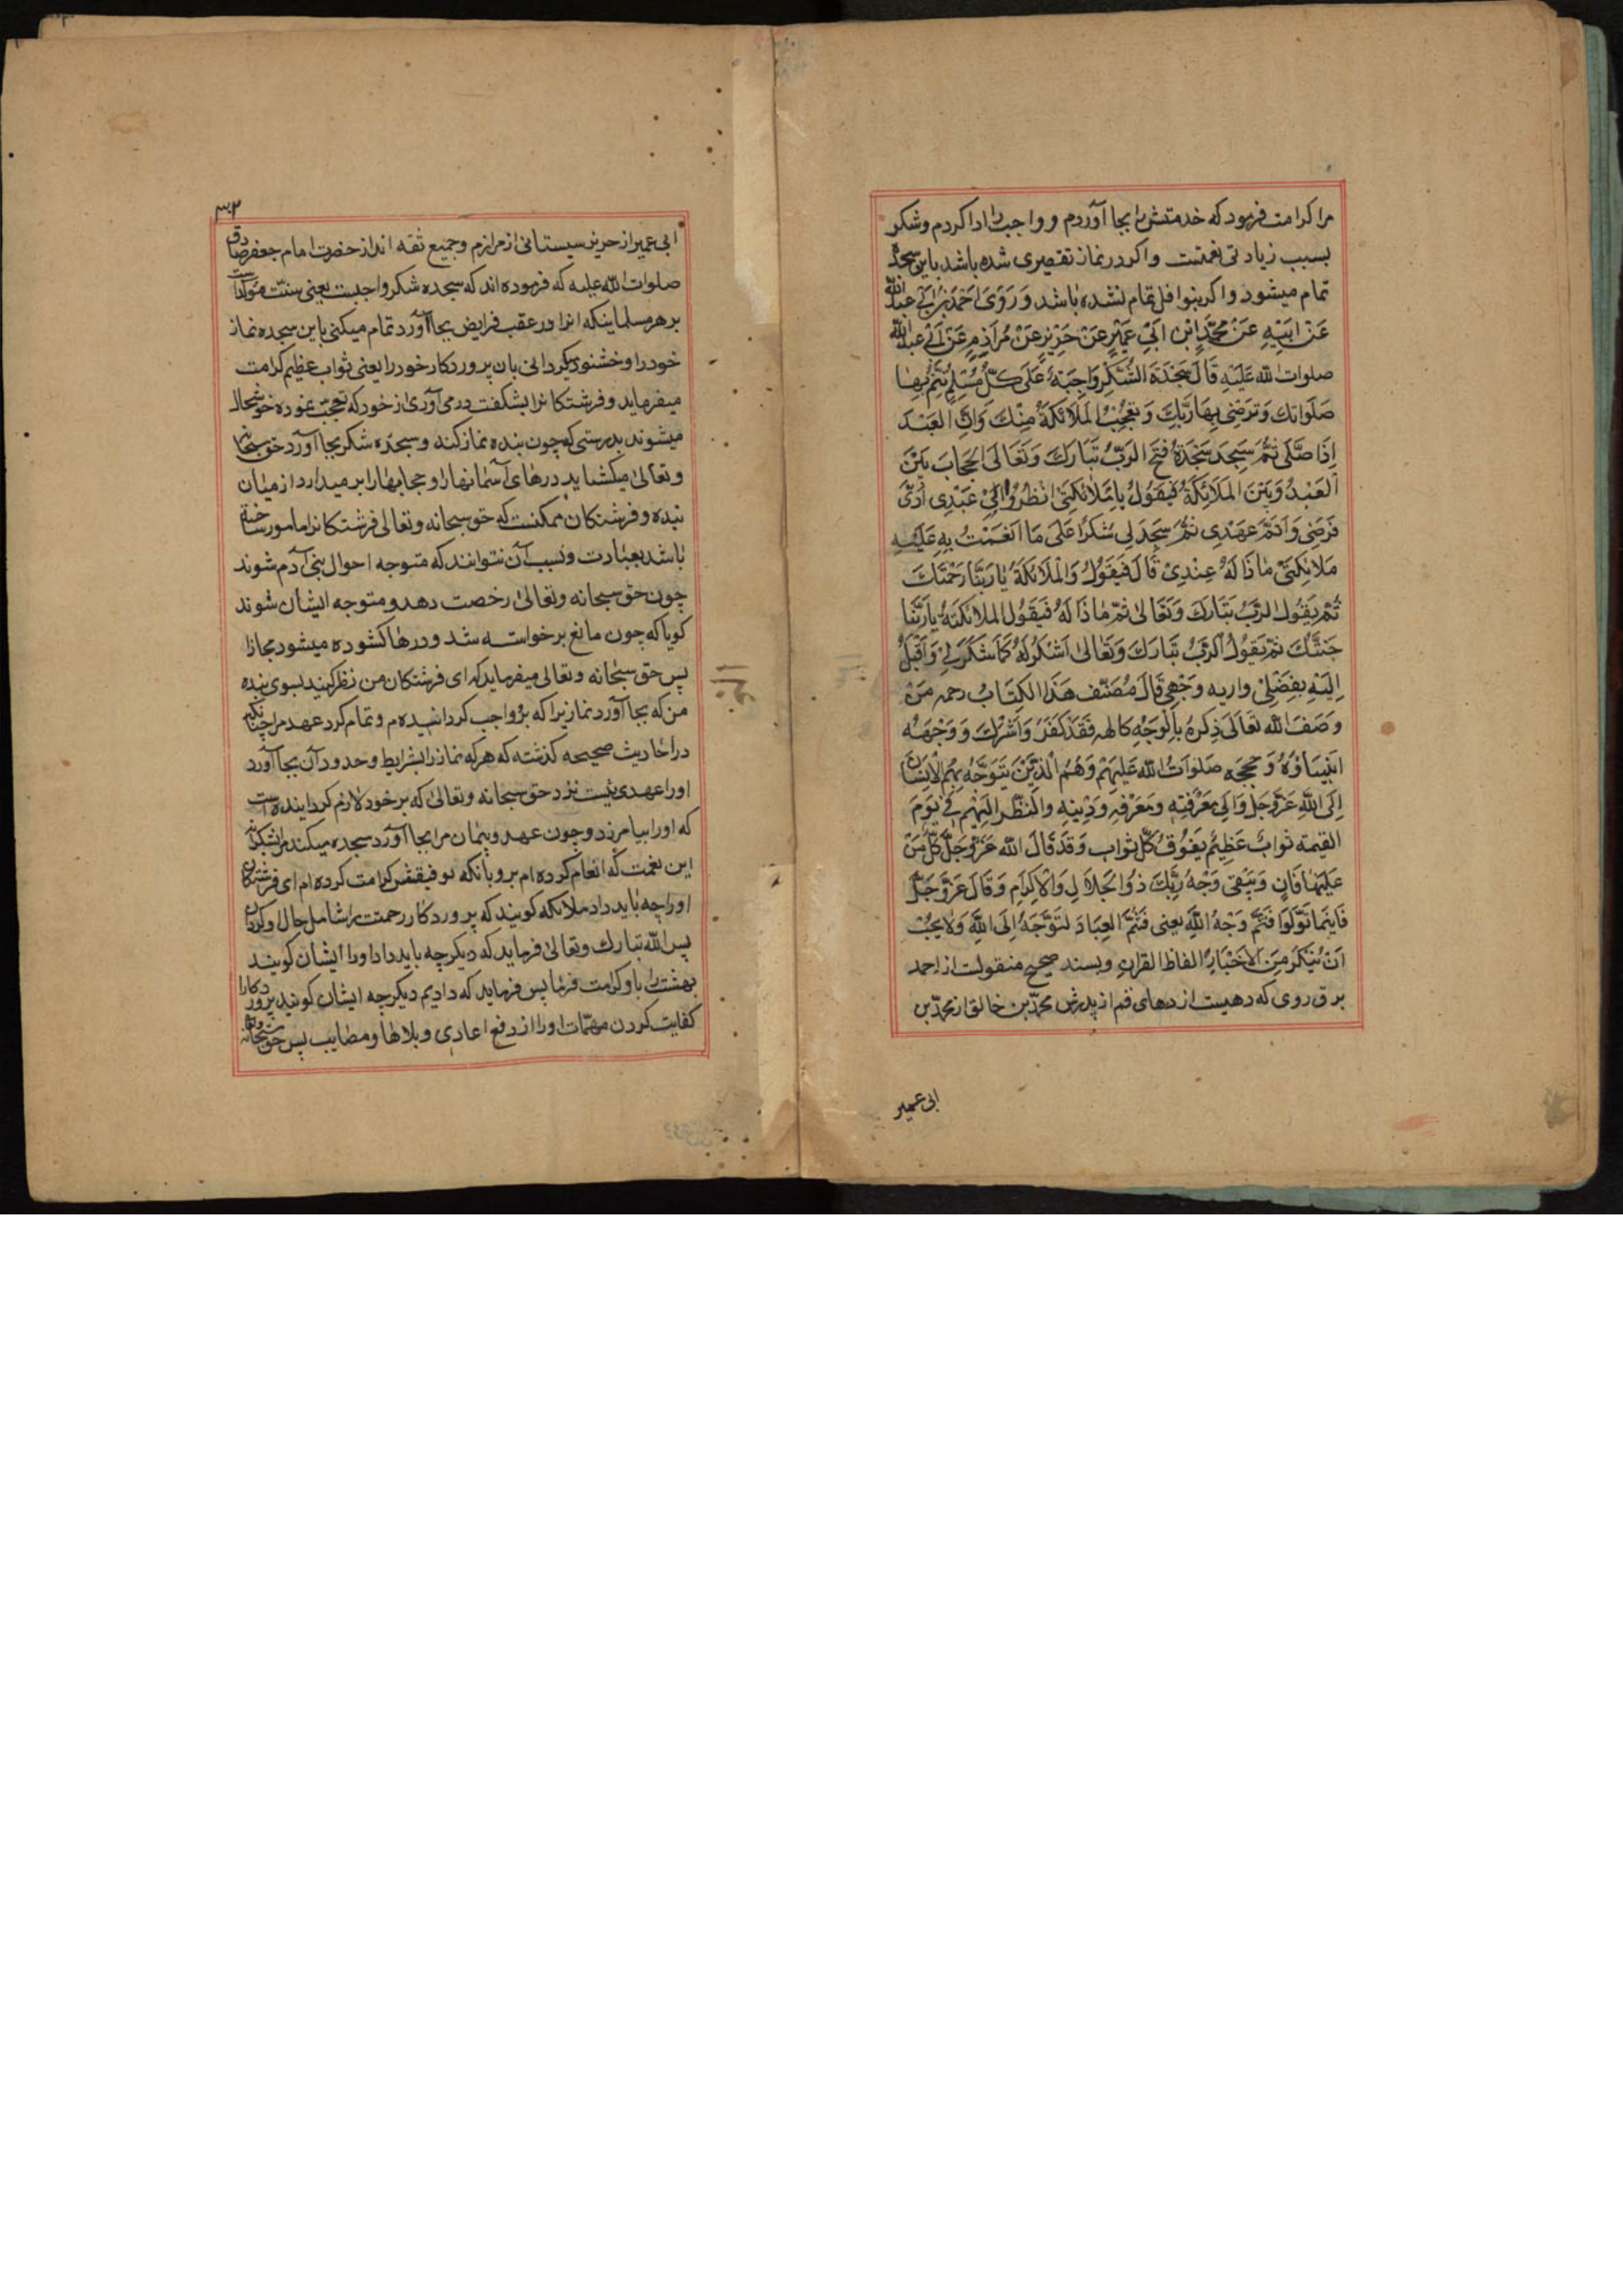 مرا کرامت فرمود که خدمتش را بجا آوردم و واجب را ادا کردم و شکر
بسبب زیادتی نعمتست و اکر در نماز تقصیری شده باشد باین سجده
تمام میشود و اکر بنوافل تمام نشده باشد وَ رَوَی اَحْمَدُ بْنُ اَبی عبدالله
عَنْ اَبیهِ عَنْ مُحَمَّدِ ابْنِ اَبی عُمَیْرٍ عَنْ حَرِیزٍ عَنْ مُرَازِمٍ عَنْ اَبی عبدالله
صلوات الله عَلَیْهِ قَالَ سَجْدَةُ الشُّکْرِ وَاجِبَةٌ عَلَی کُلِّ مُسْلِمٍ تُتِمُّ بِهَا
صَلَوٰتَكَ وَ تُرْضِی بِهَا رَبَّكَ وَ تَعْجَبُ الْمَلَائِکَةُ مِنْكَ وَ اِنَّ الْعَبْدَ
اِذَا صَلَّی ثُمَّ سَجَدَ سَجْدَةً فَتَحَ الرَّبُّ تَبَارَكَ وَ تَعَالَی الْحِجَابَ بَیْنَ
الْعَبْدِ وَ بَیْنَ الْمَلَائِکَةِ فَیَقُولُ یَا مَلَائِکَتِی انْظُرُوا اِلیٰ عَبْدِی اَدَّیٰ
فَرَضِی وَ اَتَمَّ عَهْدِی ثُمَّ سَجَدَ لِی شُکْرًا عَلَی مَا اَنْعَمْتُ بِهِ عَلَیْهِ
مَلَائِکَتِی مَاذَا لَهُ عِنْدِی قَالَ فَیَقُولُ وَ الْمَلَائِکَةُ یَا رَبَّنَا رَحْمَتَكَ
ثُمَّ یَقُولُ الرَّبُّ تَبَارَكَ وَ تَعَالیٰ ثُمَّ مَاذَا لَهُ فَیَقُولُ الْمَلَائِکَةُ یَا رَبَّنَا
جَنَّتَكَ ثُمَّ یَقُولُ الرَّبُّ تَبَارَكَ وَ تَعَالیٰ اَشْکُرُ لَهُ کَمَا شَکَرَ لِی وَ اَقْبَلُ
اِلَیْهِ بِفَضْلِی واریه وَجْهِی قَالَ مُصَنِّف هَذَا الْکِتَابِ رحمه مَنْ
وَصَفَ الله تَعَالَی ذِکْرُهُ بِالْوَجْهِ کَالهِ فَقَدْ کَفَرَ وَ اَشْرَكَ وَ وَجْهُهُ
اَنْبِیَاؤُهُ وَ حُجَجُه صَلَوَاتُ الله عَلَیْهِمْ وَ هُمُ الَّذِینَ یَتَوَجَّهُ بِهِمُ الْاِنْسَانُ
اِلَی اللهِ عَزَّ وَ جَلَّ وَ اِلیٰ مَعْرِفَتِهِ وَ مَعْرَفَةِ وَ دِینِهِ وَ النَّظَرُ اِلَیْهِمْ فِی یَوْمِ
القیمة ثوابٌ عَظِیمٌ یَفُوقُ کُلَّ ثواب وَ قَدْ قَالَ الله عَزَّ وَ جَلَّ کُلُّ مَنْ
عَلَیْهَا فَانٍ وَ یَبْقیٰ وَجْهُ رَبِّكَ ذُوالْجَلَالِ وَالْاِکْرَامِ وَ قَالَ عَزَّ وَ جَلَّ
فَاَیْنَمَا تُوَلُّوا فَثَمَّ وَجْهُ اللهِ یعنی فَثَمَّ الْعِبَادَ لِتَوَجُّهِ اِلَی اللهِ وَ لَا یَجِبُ
اَنْ تُنْکَرَ مِنَ الْاَخْبَارِ الفاظُ القرانِ و بسند صحیح منقولست از احمد
برقروی که دهیست از دههای قم از پدرش محمّد بن خالق از محمّد بن
ابی عمیر
۳۲
ابی عمیر از حریز سیستانی از مرازم و جمیع ثقه اند از حضرت امام جعفر صادق
صلوات الله علیه که فرموده اند که سجده شکر واجبست یعنی سنّت مؤکّد است
بر هر مسلما اینکه انرا در عقب فرایض بجا آورد تمام میکنی باین سجده نماز
خود را و خشنود میکردانی بان پروردکار خود را یعنی ثواب عظیم کرامت
میفرماید و فرشتکانرا بشکفت درمی آوری از خود که تعجّب نموده خوشحال
میشوند بدرستی که چون بنده نماز کند و سجده شکر بجا آورد حق سبحانه
و تعالیٰ میکشاید درهای آسمانها را و حجابها را بر میدارد از میان
بنده و فرشتکان ممکنست که حق سبحانه و تعالی فرشتکانرا مامور ساخته
باشد بعبادت و بسبب آن نتوانند که متوجه احوال بنی آدم شوند
چون حق سبحانه و تعالیٰ رخصت دهد و متوجه ایشان شوند
کویا که چون مانع برخواسته شد و درها کشوده میشود مجازا
پس حق سبحانه و تعالی میفرماید که ای فرشتکان من نظر کنید بسوی بنده
من که بجا آورد نمازیرا که بر او واجب کردانیده م و تمام کرد عهد مرا چنانکه
در احادیث صحیحه کذشته که هر که نماز را بشرایط و حدود آن بجا آورد
او را عهدی نیست نزد حق سبحانه و تعالیٰ که بر خود لازم کردانیده است
که او را بیامرزد و چون عهد و پیمان مرا بجا آورد سجده میکند مرا بشکرانه
این نعمت که انعام کرده ام برو بانکه توفیقش کرامت کرده ام ای فرشتکان
او را چه باید داد ملائکه کویند که پروردکار رحمتت را شامل حال او کردان
پس الله تبارك و تعالیٰ فرماید که دیکر چه باید داد او را ایشان کویند
بهشت را باو کرامت فرما پس فرماید که دادیم دیکر چه ایشان کویند پروردکارا
کفایت کردن مهمّات او را از دفع اعادی و بلاها و مصایب پس حق سبحانه